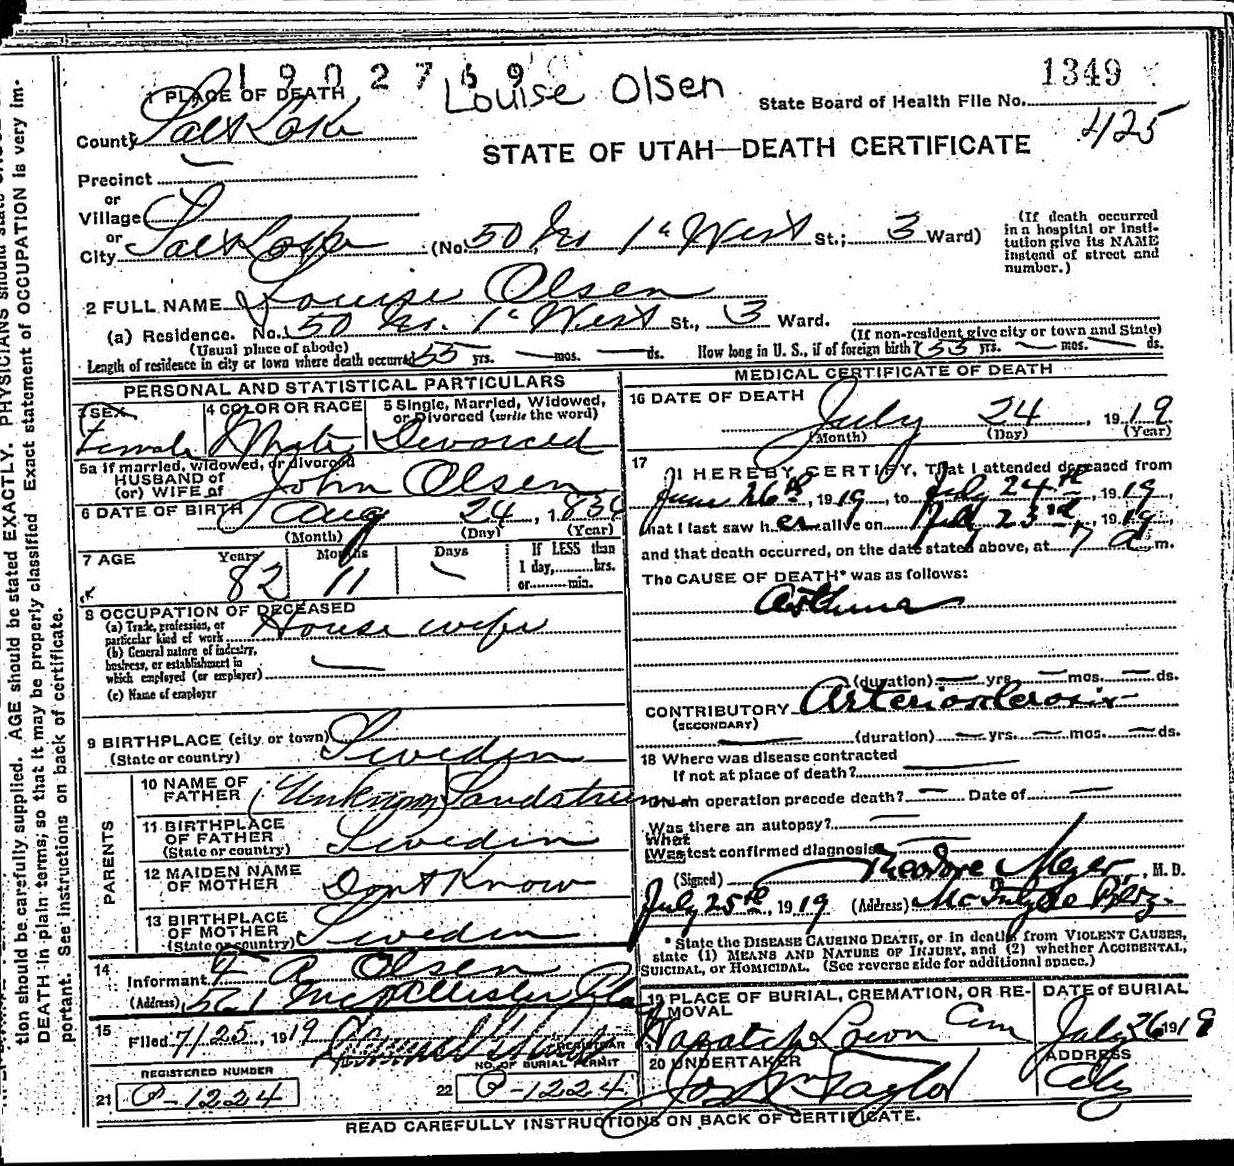 1902769
Louise Olsen
1349
1 PLACE OF DEATH
State Board of Health File No.
County Salt Lake
425
STATE OF UTAH—DEATH CERTIFICATE
Precinct
or
Village
or
City Salt Lake (No. 50 No. 1st West St.; 3 Ward)
(If death occurred in a hospital or institution give its NAME instead of street and number.)
2 FULL NAME Louise Olsen
(a) Residence. No. 50 No. 1st West St., 3 Ward.
(Usual place of abode)
(If non-resident give city or town and State)
Length of residence in city or town where death occurred 55 yrs. — mos. — ds. How long in U. S., if of foreign birth? 55 yrs. — mos. — ds.
PERSONAL AND STATISTICAL PARTICULARS
3 SEX
Female
4 COLOR OR RACE
White
5 Single, Married, Widowed, or Divorced (write the word)
Divorced
5a If married, widowed, or divorced
HUSBAND of
(or) WIFE of John Olsen
6 DATE OF BIRTH Aug 24, 1836
(Month) (Day) (Year)
7 AGE
Years 82
Months 11
Days —
If LESS than
1 day,......hrs.
or......min.
8 OCCUPATION OF DECEASED
(a) Trade, profession, or particular kind of work House wife
(b) General nature of industry, business, or establishment in which employed (or employer) —
(c) Name of employer
9 BIRTHPLACE (city or town)
(State or country) Sweden
PARENTS
10 NAME OF FATHER (Unknown) Sandstrum
11 BIRTHPLACE OF FATHER
(State or country) Sweden
12 MAIDEN NAME OF MOTHER Dont Know
13 BIRTHPLACE OF MOTHER
(State or country) Sweden
14
Informant A Olsen
(Address) 561 McAllister
15
Filed 7/25, 1919
REGISTRAR
REGISTERED NUMBER
21 C-1224
NO. OF BURIAL PERMIT
22 C-1224
MEDICAL CERTIFICATE OF DEATH
16 DATE OF DEATH
July 24, 1919
(Month) (Day) (Year)
17
I HEREBY CERTIFY, That I attended deceased from
June 26th, 1919, to July 24th, 1919
that I last saw her alive on July 23rd, 1919
and that death occurred, on the date stated above, at 7 a m.
The CAUSE OF DEATH* was as follows:
Asthma
(duration) — yrs. — mos. — ds.
CONTRIBUTORY Arteriosclerosis
(SECONDARY)
(duration) — yrs. — mos. — ds.
18 Where was disease contracted
If not at place of death?
Did an operation precede death? — Date of —
Was there an autopsy? —
What
Was test confirmed diagnosis
(Signed) Theodore Meyer, M. D.
July 25th, 1919 (Address) McIntyre Blg.
* State the DISEASE CAUSING DEATH, or in deaths from VIOLENT CAUSES, state (1) MEANS AND NATURE OF INJURY, and (2) whether ACCIDENTAL, SUICIDAL, or HOMICIDAL. (See reverse side for additional space.)
19 PLACE OF BURIAL, CREMATION, OR REMOVAL
Wasatch Lawn Cem
DATE of BURIAL
July 26 1919
20 UNDERTAKER
Jos Wm Taylor
ADDRESS
City
READ CAREFULLY INSTRUCTIONS ON BACK OF CERTIFICATE.
tion should be carefully supplied. AGE should be stated EXACTLY. PHYSICIANS should state
DEATH in plain terms, so that it may be properly classified. Exact statement of OCCUPATION is very im-
portant. See instructions on back of certificate.